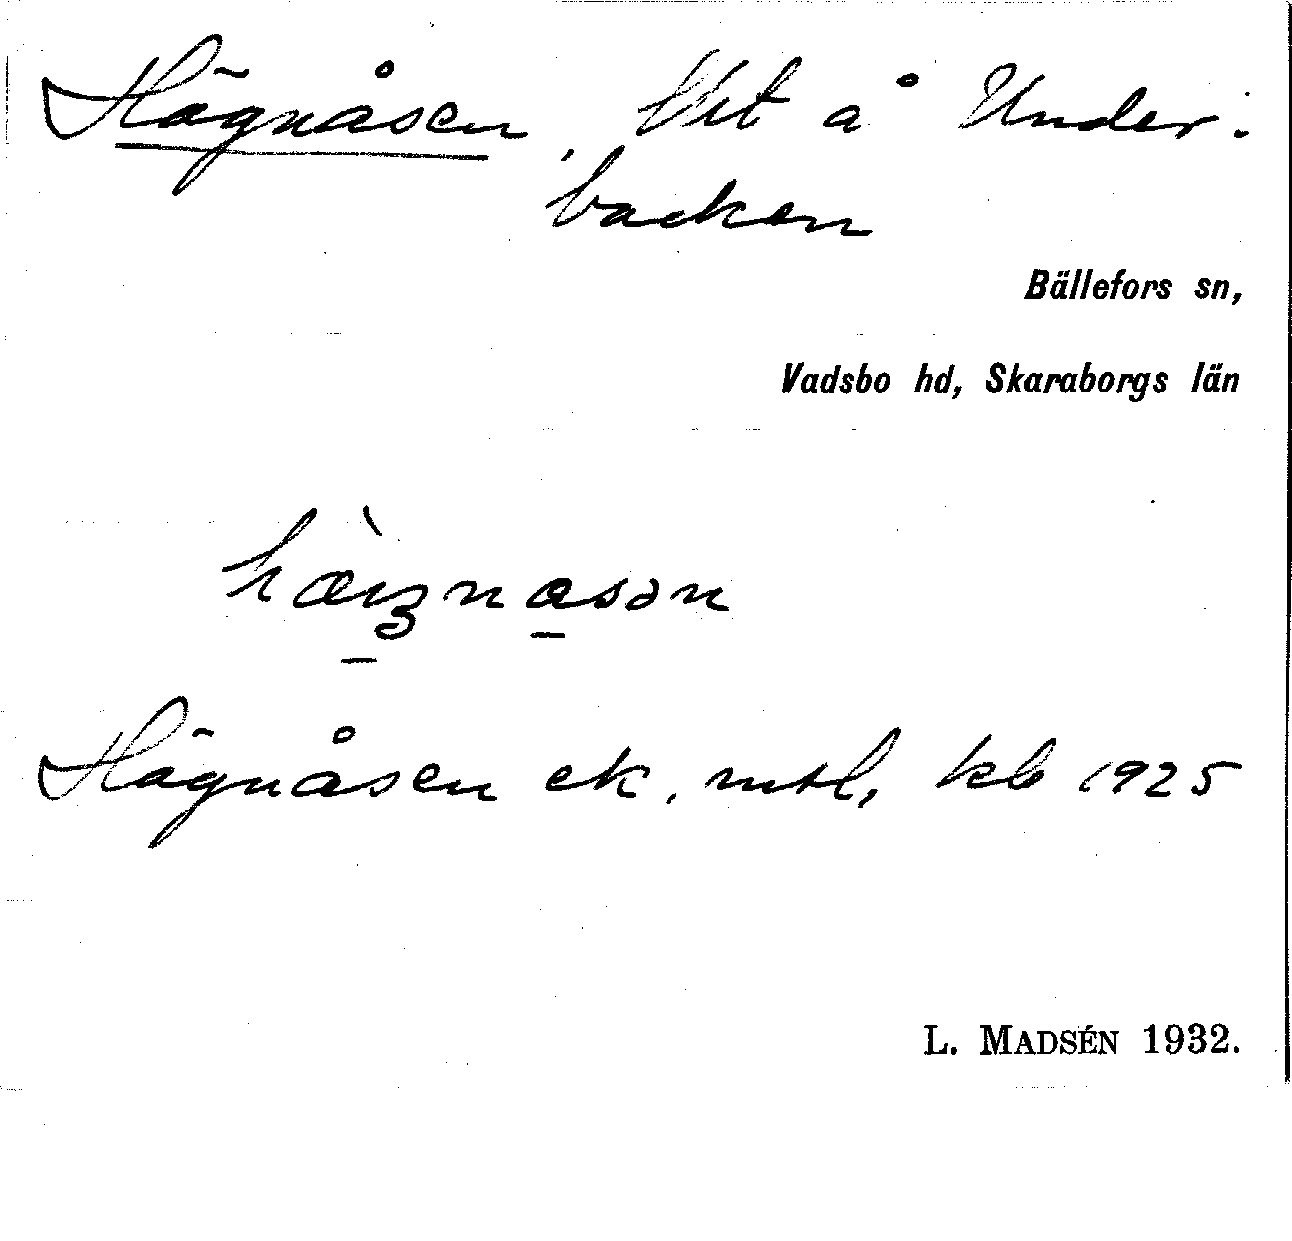 Hägnåsen, Utt å Under-
backen
Bällefors sn,
Vadsbo hd, Skaraborgs län
Hägnåsen ek. mtl, kb 1925
L. MADSÉN 1932.